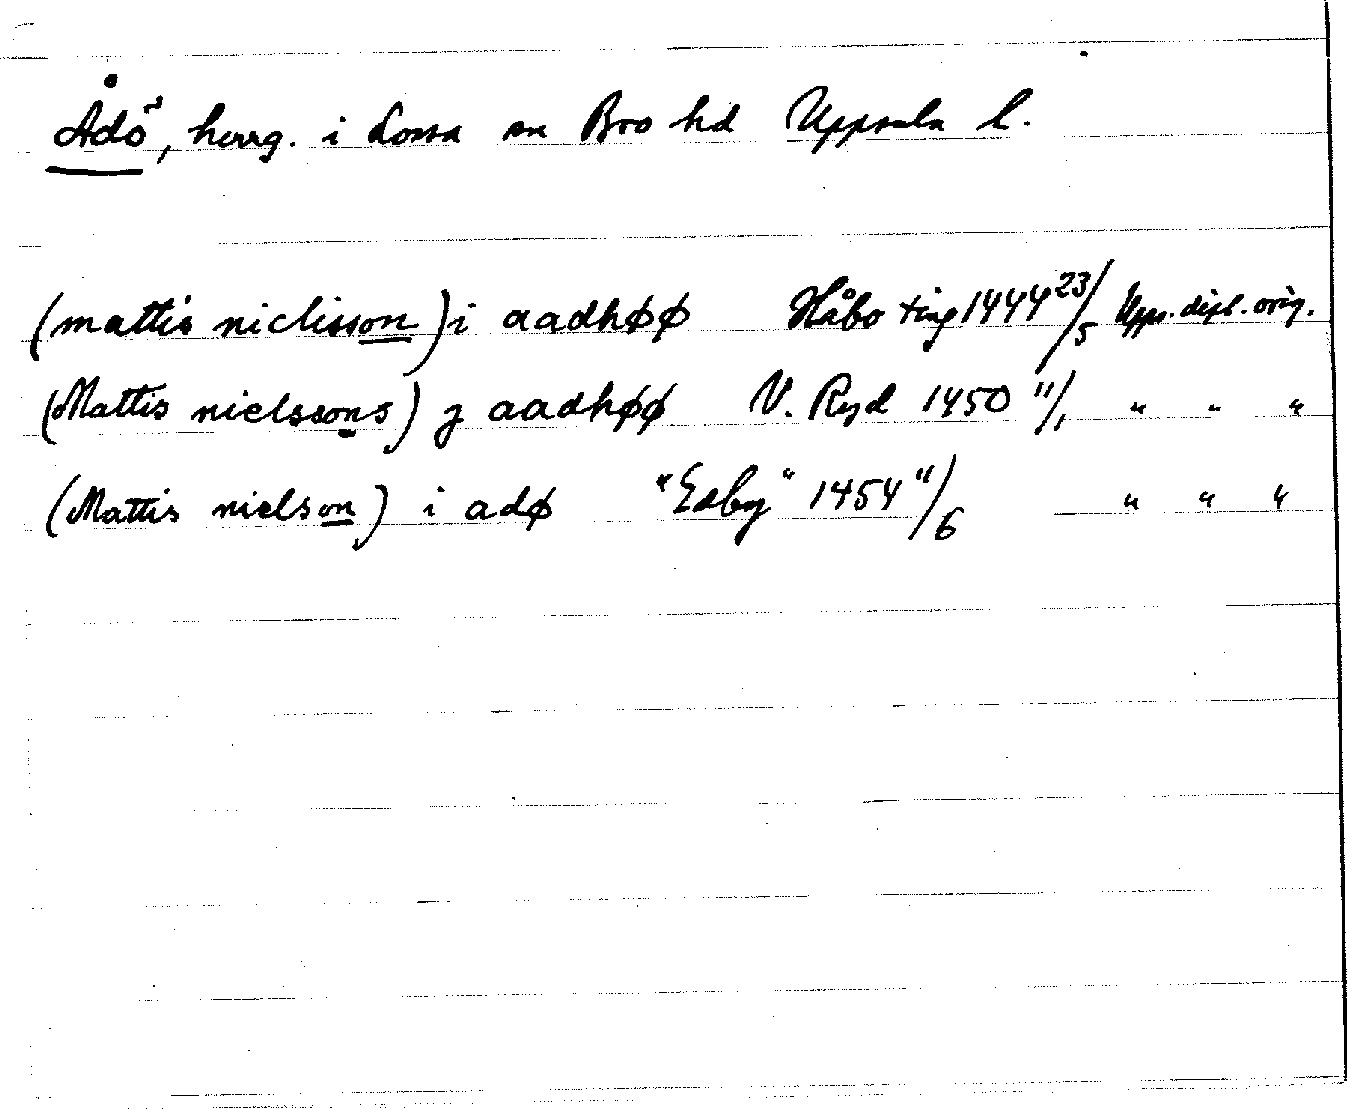 Ådö, herrg. i Lossa sn Bro hd Uppsala l.
(mattis niclisson) i aadhøø Håbo ting 1444 23/5 Upps. dipl. orig.
(Mattis nielssons) j aadhøø V. Ryd 1450 11/1 " " "
(Mattis nielson) i adø "Edby" 1454 11/6 " " "